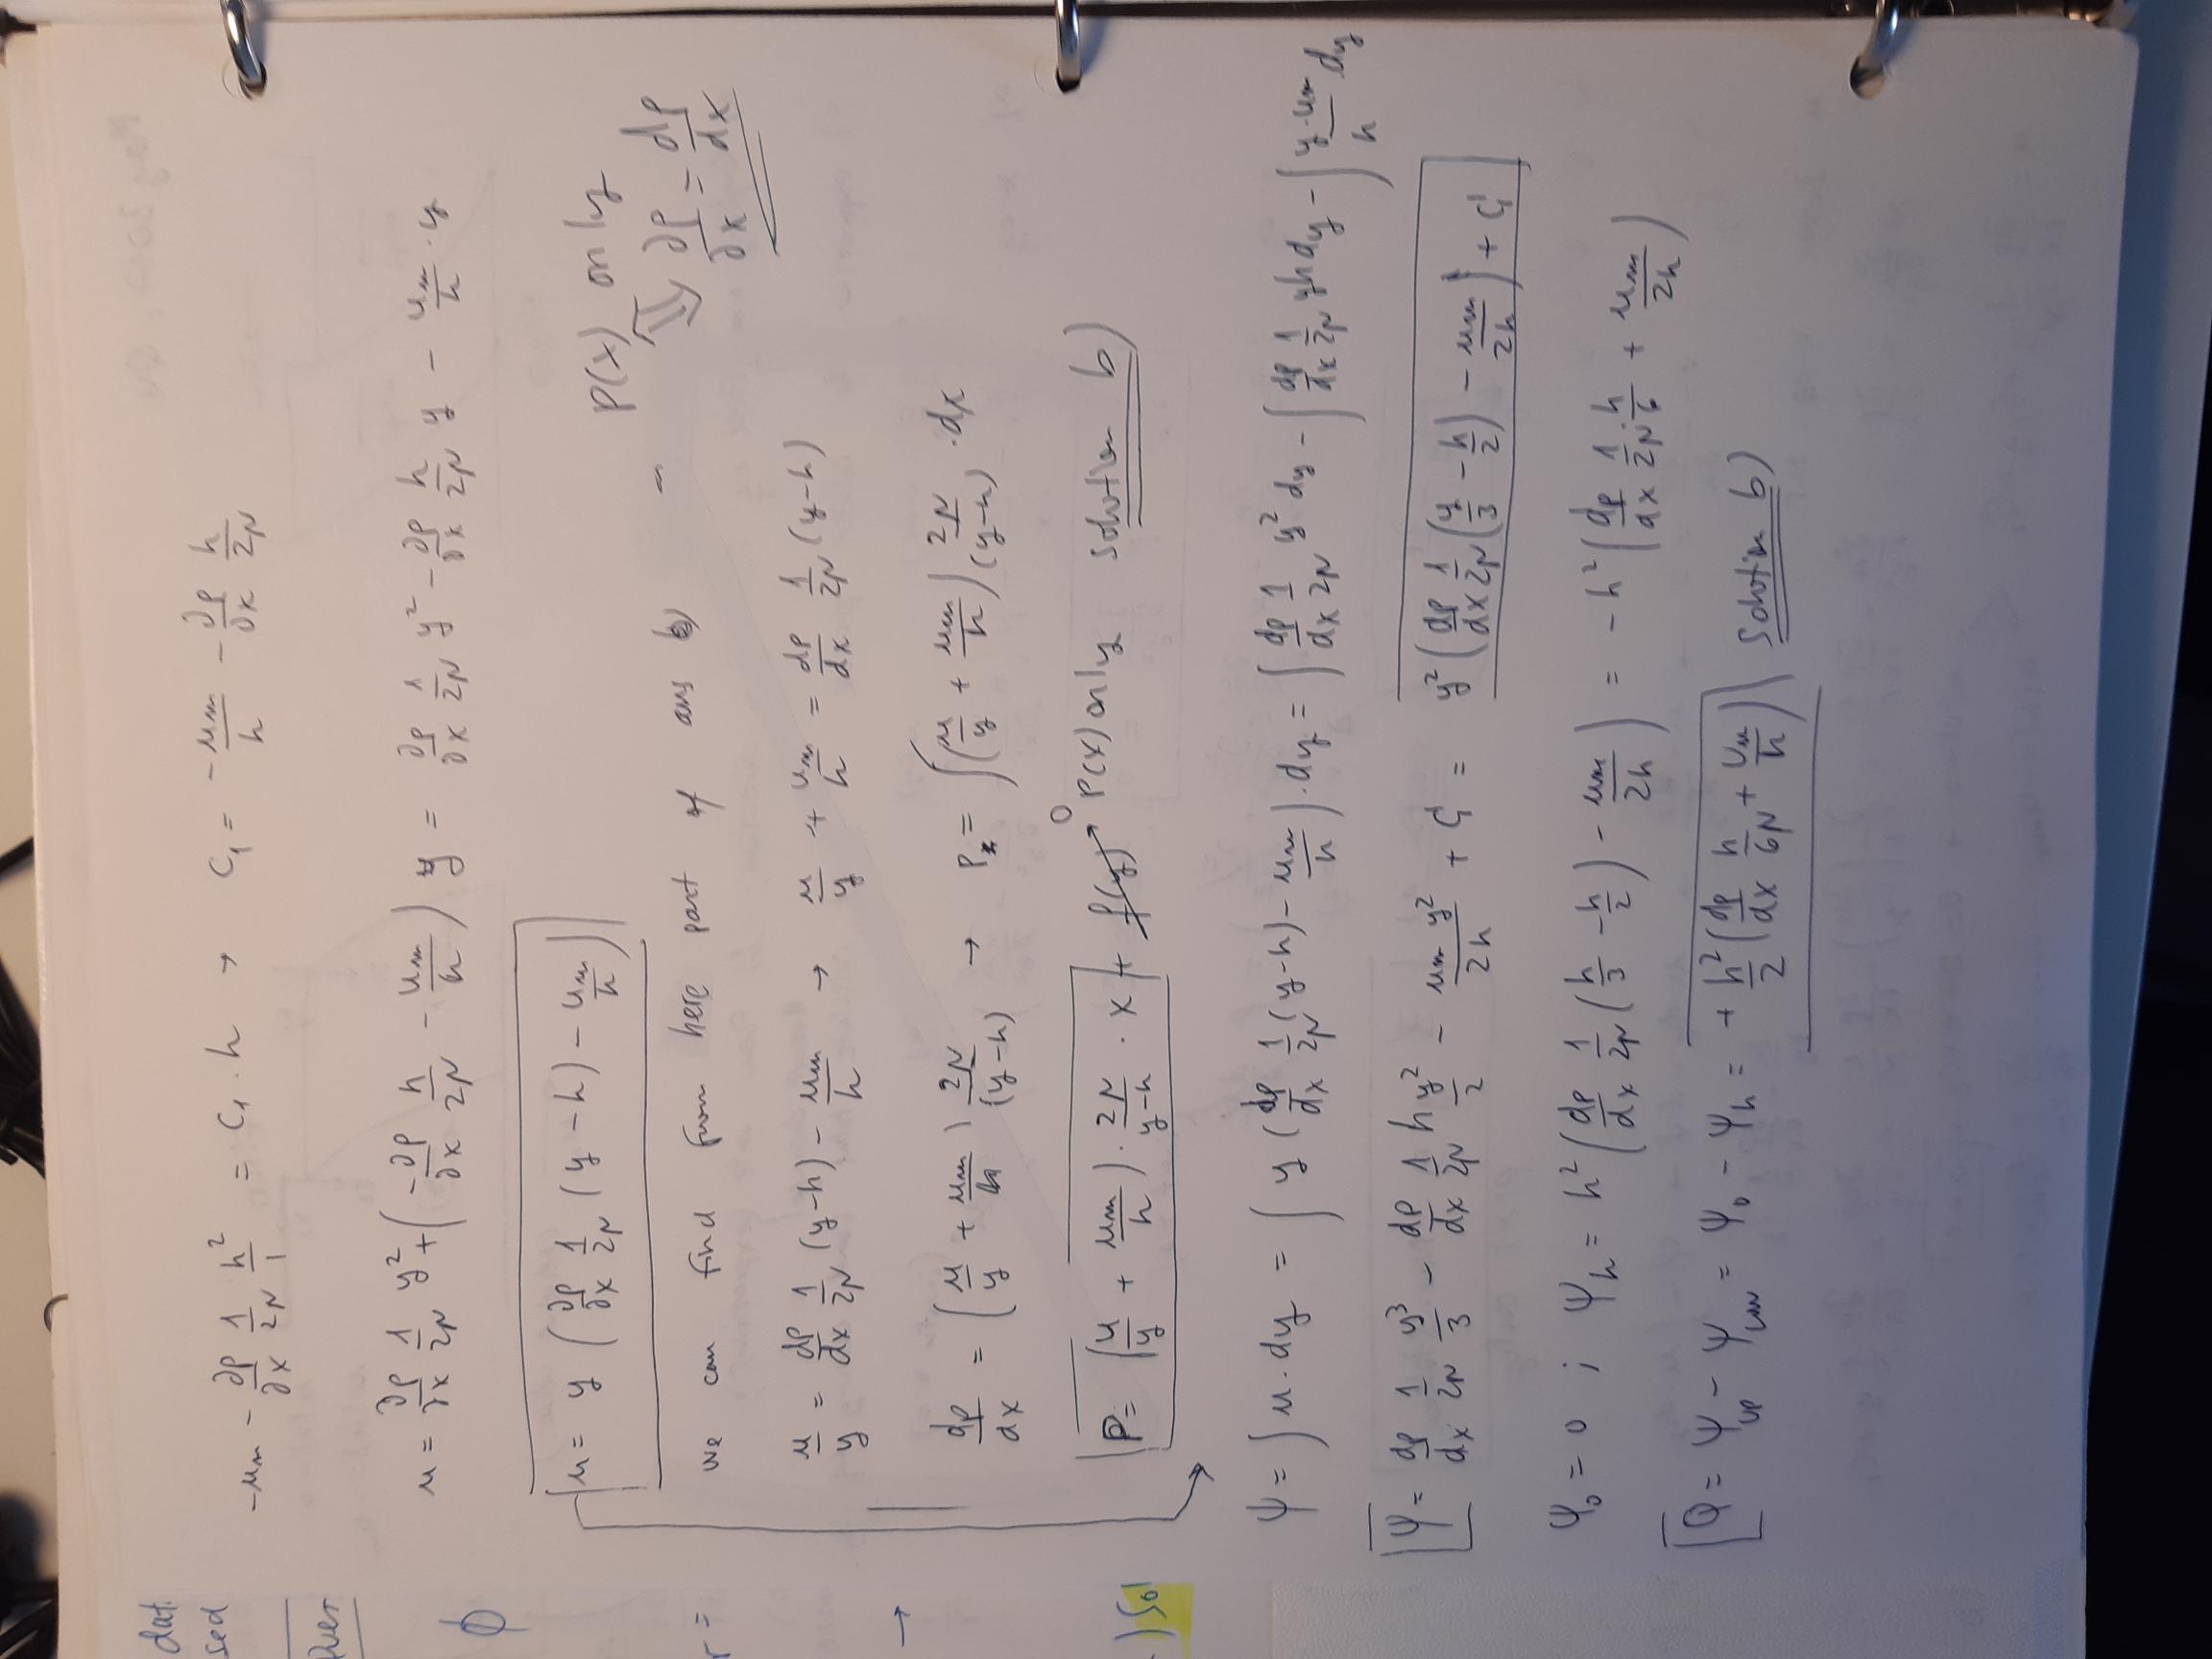 dat.
sed
ϕ
r =
→
-u_m - ∂p/∂x 1/2μ h²/1 = C₁ · h → C₁ = -u_m/h - ∂p/∂x h/2μ
u = ∂p/∂x 1/2μ y² + ( -∂p/∂x h/2μ - u_m/h ) y = ∂p/∂x 1/2μ y² - ∂p/∂x h/2μ y - u_m/h · y
u = y ( ∂p/∂x 1/2μ (y - h) - u_m/h )
P(x) only
⇕ ∂p/∂x = dp/dx
we can find from here part of ans b)
u/y = dp/dx 1/2μ (y-h) - u_m/h → u/y + u_m/h = dp/dx 1/2μ (y-h)
dp/dx = ( u/y + u_m/h ) 2μ/(y-h) → P = ∫( u/y + u_m/h ) 2μ/(y-h) · dx
P = ( u/y + u_m/h ) · 2μ/y-h · x + f(y) → 0 P(x) only solution b)
ψ = ∫ u · dy = ∫ y ( dp/dx 1/2μ (y-h) - u_m/h ) · dy = ∫ dp/dx 1/2μ y² dy - ∫ dp/dx 1/2μ yh dy - ∫ y·u_m/h dy
ψ = dp/dx 1/2μ y³/3 - dp/dx 1/2μ h y²/2 - u_m y²/2h + C₁ = y² ( dp/dx 1/2μ ( y/3 - h/2 ) - u_m/2h ) + C₁
ψ₀ = 0 ; ψ_h = h² ( dp/dx 1/2μ ( h/3 - h/2 ) - u_m/2h ) = -h² ( dp/dx 1/2μ · h/6 + u_m/2h )
Q = ψ_up - ψ_low = ψ₀ - ψ_h = + h²/2 ( dp/dx h/6μ + u_m/h ) solution b)